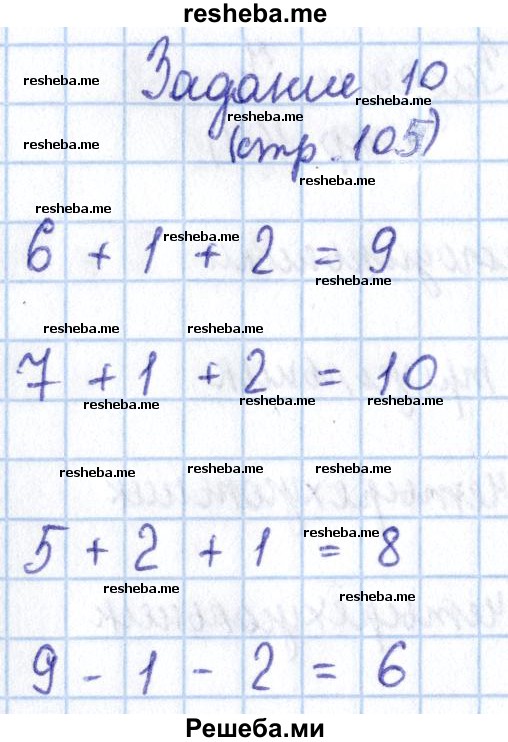 resheba.me
Задание 10
resheba.me
resheba.me
resheba.me
(стр. 105)
resheba.me
resheba.me
resheba.me
6 + 1 + 2 = 9
resheba.me
resheba.me resheba.me
7 + 1 + 2 = 10
resheba.me resheba.me resheba.me
resheba.me resheba.me resheba.me
resheba.me
5 + 2 + 1 = 8
resheba.me resheba.me
9 - 1 - 2 = 6
Решеба.ми